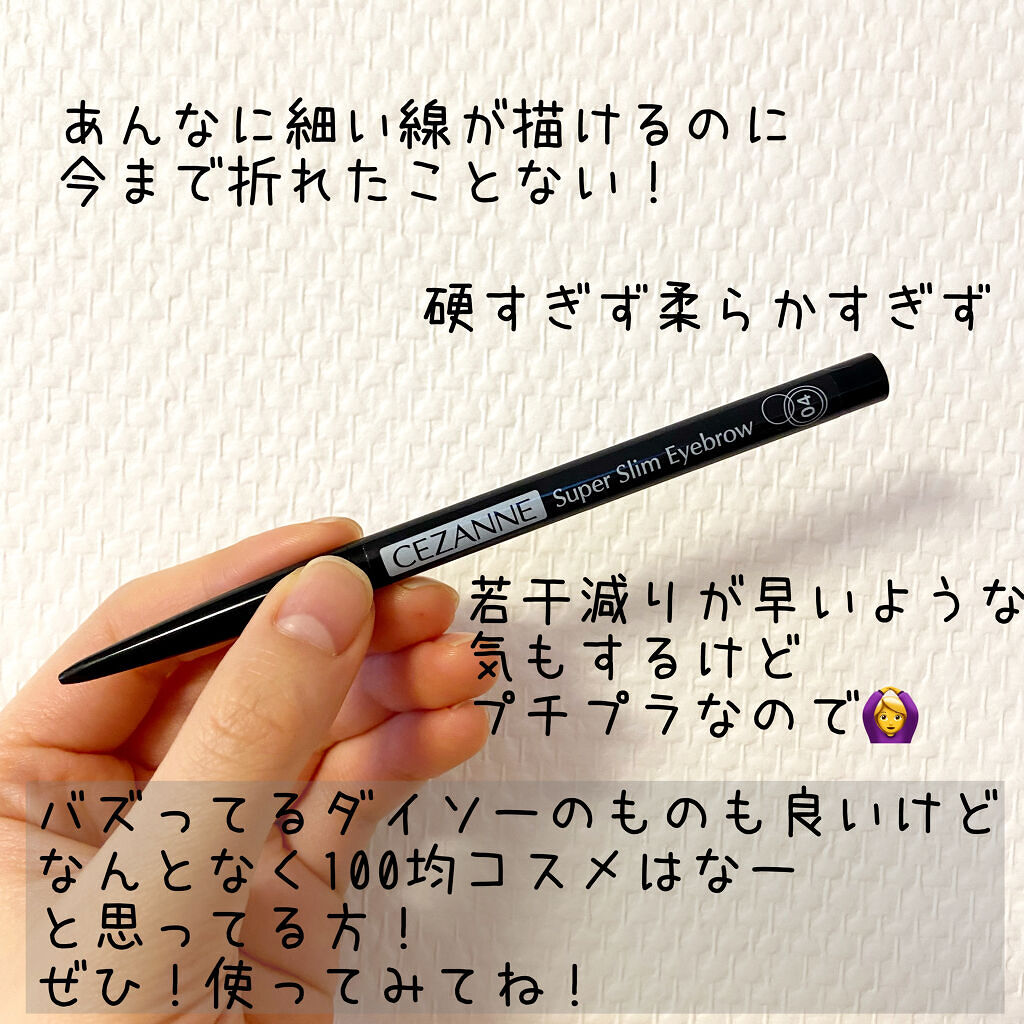 あんなに細い線が描けるのに
今まで折れたことない！
硬すぎず柔らかすぎず
04
CEZANNE Super Slim Eyebrow
若干減りが早いような
気もするけど
プチプラなので🙆‍♀️
バズってるダイソーのものも良いけど
なんとなく100均コスメはなー
と思ってる方！
ぜひ！使ってみてね！